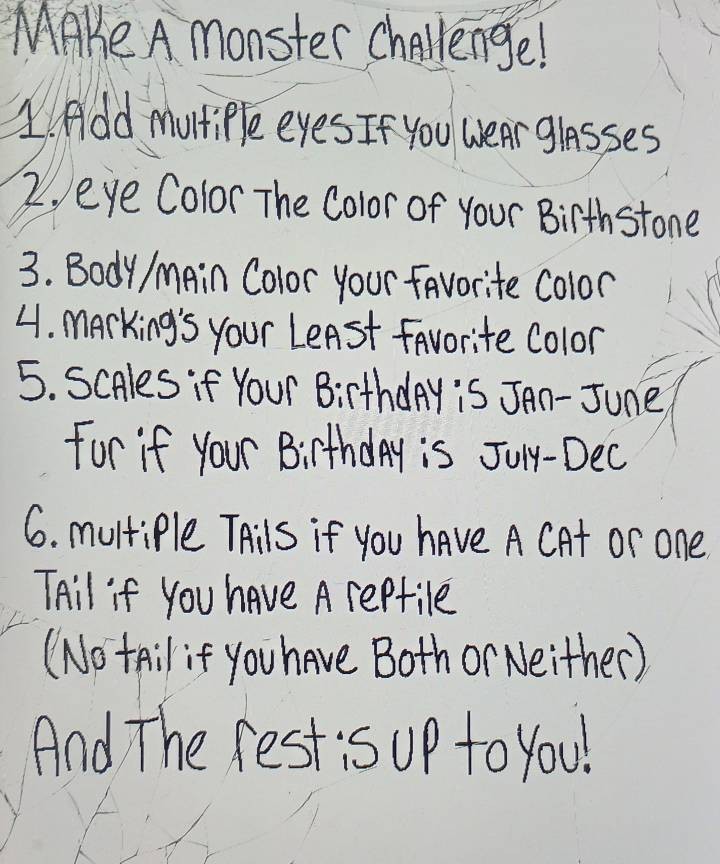 MAKe A monster ChAllenge!
1. Add multiple eyes If you weAr glAsses
2. eye Color The Color of your BirthStone
3. Body/mAin Color your fAvorite Color
4. mArking's your LeAst fAvorite Color
5. ScAles if Your BirthdAy is JAn-June
fur if your BirthdAy is July-Dec
6. multiple TAils if you hAve A CAt or one
TAil if you hAve A reptile
(No tAil if you hAve Both or Neither)
And The rest is up to you!